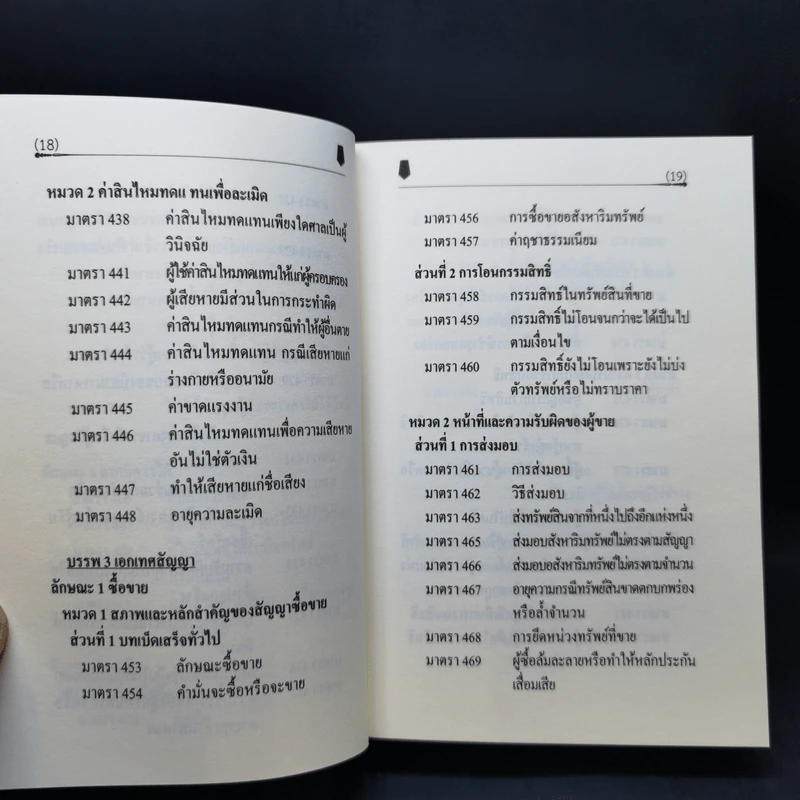 (18)
หมวด 2 ค่าสินไหมทดแ ทนเพื่อละเมิด
มาตรา 438 ค่าสินไหมทดแทนเพียงใดศาลเป็นผู้
วินิจฉัย
มาตรา 441 ผู้ใช้ค่าสินไหมทดแทนให้แก่ผู้ครอบครอง
มาตรา 442 ผู้เสียหายมีส่วนในการกระทำผิด
มาตรา 443 ค่าสินไหมทดแทนกรณีทำให้ผู้อื่นตาย
มาตรา 444 ค่าสินไหมทดแทน กรณีเสียหายแก่
ร่างกายหรืออนามัย
มาตรา 445 ค่าขาดแรงงาน
มาตรา 446 ค่าสินไหมทดแทนเพื่อความเสียหาย
อันไม่ใช่ตัวเงิน
มาตรา 447 ทำให้เสียหายแก่ชื่อเสียง
มาตรา 448 อายุความละเมิด
บรรพ 3 เอกเทศสัญญา
ลักษณะ 1 ซื้อขาย
หมวด 1 สภาพและหลักสำคัญของสัญญาซื้อขาย
ส่วนที่ 1 บทเบ็ดเสร็จทั่วไป
มาตรา 453 ลักษณะซื้อขาย
มาตรา 454 คำมั่นจะซื้อหรือจะขาย
(19)
มาตรา 456 การซื้อขายอสังหาริมทรัพย์
มาตรา 457 ค่าฤชาธรรมเนียม
ส่วนที่ 2 การโอนกรรมสิทธิ์
มาตรา 458 กรรมสิทธิ์ในทรัพย์สินที่ขาย
มาตรา 459 กรรมสิทธิ์ไม่โอนจนกว่าจะได้เป็นไป
ตามเงื่อนไข
มาตรา 460 กรรมสิทธิ์ยังไม่โอนเพราะยังไม่บ่ง
ตัวทรัพย์หรือไม่ทราบราคา
หมวด 2 หน้าที่และความรับผิดของผู้ขาย
ส่วนที่ 1 การส่งมอบ
มาตรา 461 การส่งมอบ
มาตรา 462 วิธีส่งมอบ
มาตรา 463 ส่งทรัพย์สินจากที่หนึ่งไปถึงอีกแห่งหนึ่ง
มาตรา 465 ส่งมอบสังหาริมทรัพย์ไม่ตรงตามสัญญา
มาตรา 466 ส่งมอบอสังหาริมทรัพย์ไม่ตรงตามจำนวน
มาตรา 467 อายุความกรณีทรัพย์สินขาดตกบกพร่อง
หรือล้ำจำนวน
มาตรา 468 การยึดหน่วงทรัพย์ที่ขาย
มาตรา 469 ผู้ซื้อล้มละลายหรือทำให้หลักประกัน
เสื่อมเสีย